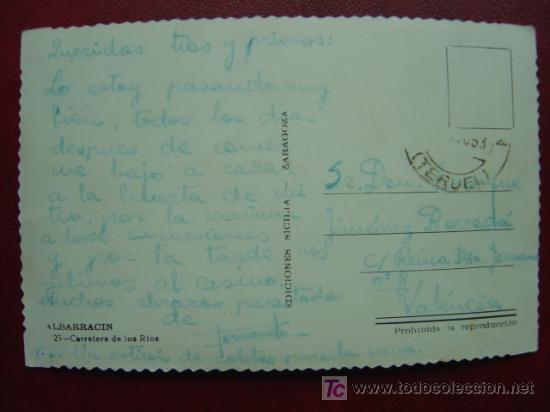 Queridos tios y primos:
Lo estoy pasando muy
bién, todos los dias
despues de comer
me bajo a cazar
a la huerta de mi
tio, por la mañana
a hacer excursiones
y por la tarde nos
subimos al casino
Muchos abrazos para todos
de
Fernando
P.D. Un estirón de coletas para la nena.
ALBARRACIN
25-Carretera de los Ríos
EDICIONES SICILIA — ZARAGOZA
(TERUEL)
Sr. Don
Jiménez Borredá
C/ Reina Dña
nº 8
Valencia
Prohibida la reproducción
TC todocoleccion
www.todocoleccion.net